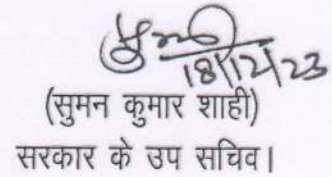 18/12/23
(सुमन कुमार शाही)
सरकार के उप सचिव।